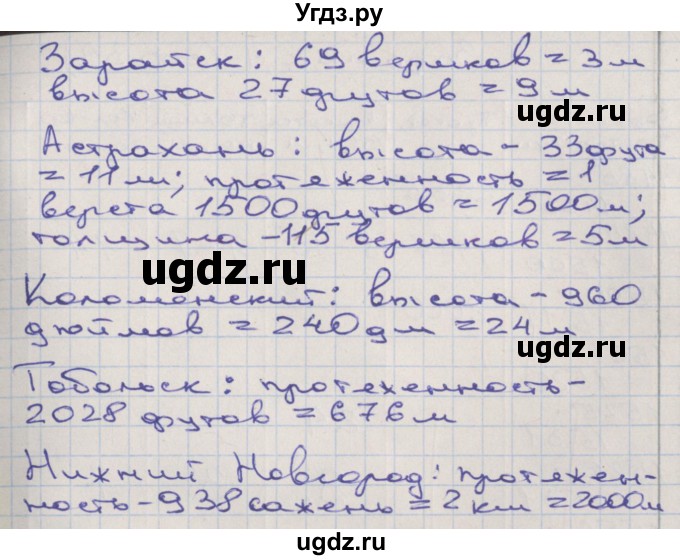 Угдз.ру
Зарайск: 69 вершков = 3 м
высота 27 футов = 9 м
ugdz.ru
Астрахань: высота - 33 фута
= 11 м; протяженность = 1
верста 1500 футов = 1500 м;
толщина - 115 вершков = 5 м
ugdz.ru
ugdz.ru
Коломенский: высота - 960
дюймов = 240 дм = 24 м
ugdz.ru
Тобольск: протяженность -
2028 футов = 676 м
Нижний Новгород: протяжен-
ность - 938 сажень = 2 км = 2000 м
ugdz.ru
ugdz.ru